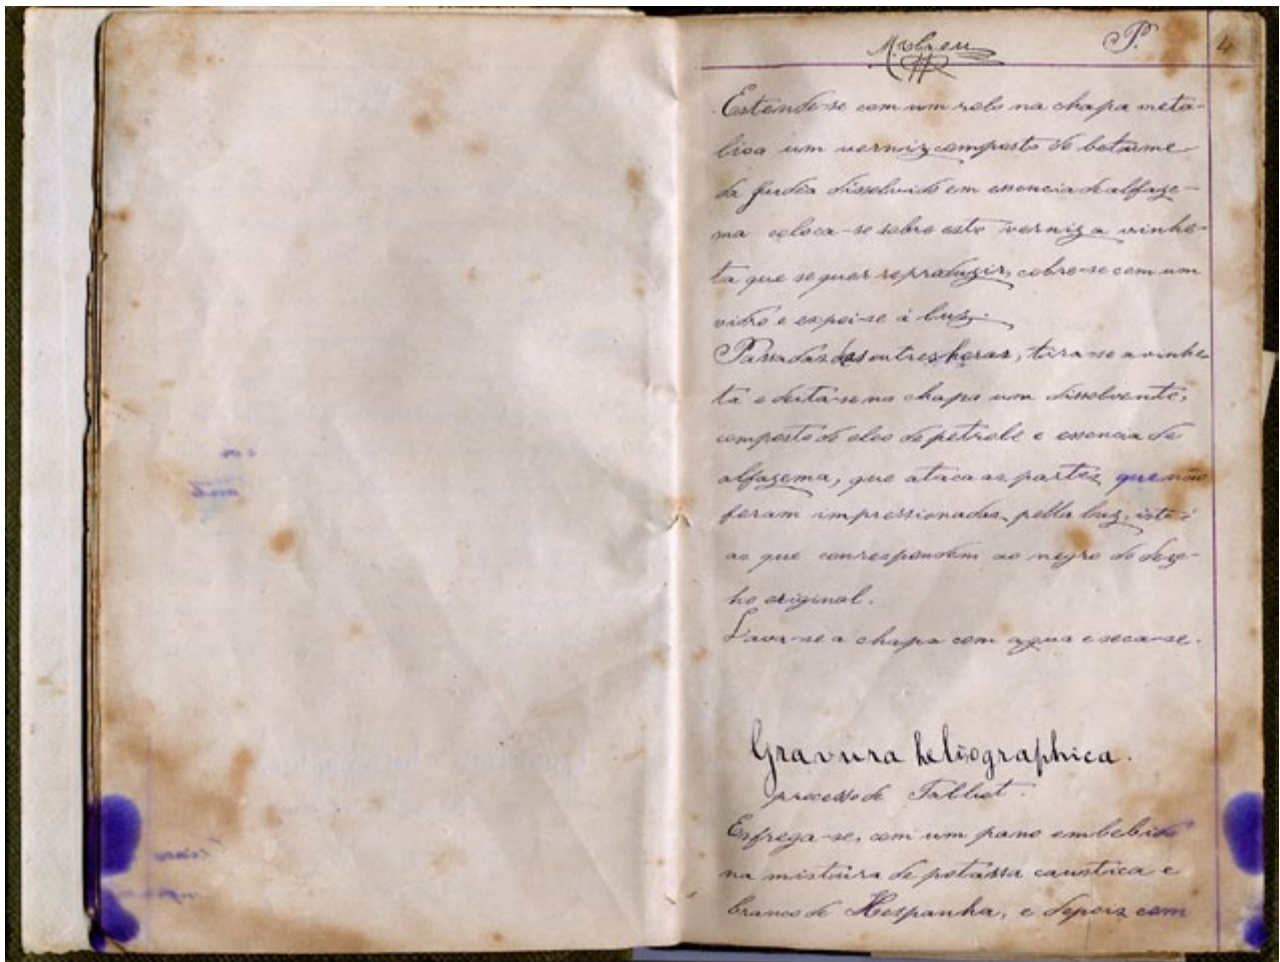 P. 4
Estende-se com um rolo na chapa meta-
lica um verniz composto de betume
da Judéa dissolvido em essencia de alfaze-
ma coloca-se sobre este verniz a vinhe-
ta que se quer reproduzir, cobre-se com um
vidro e expoi-se á luz.
Passadas das ou tres horas, tira-se a vinhe
ta e deita-se na chapa um dissolvente,
composto de oleo de petrole e essencia de
alfazema, que ataca as partes que não
foram impressionadas pella luz, isto é
as que correspondem ao negro do dese-
ho original.
Lava-se a chapa com agua e seca-se.
Gravura heliographica.
processo de Talbot.
Esfrega-se, com um pano embebido
na mistura de potassa caustica e
branco de Hespanha, e depois com